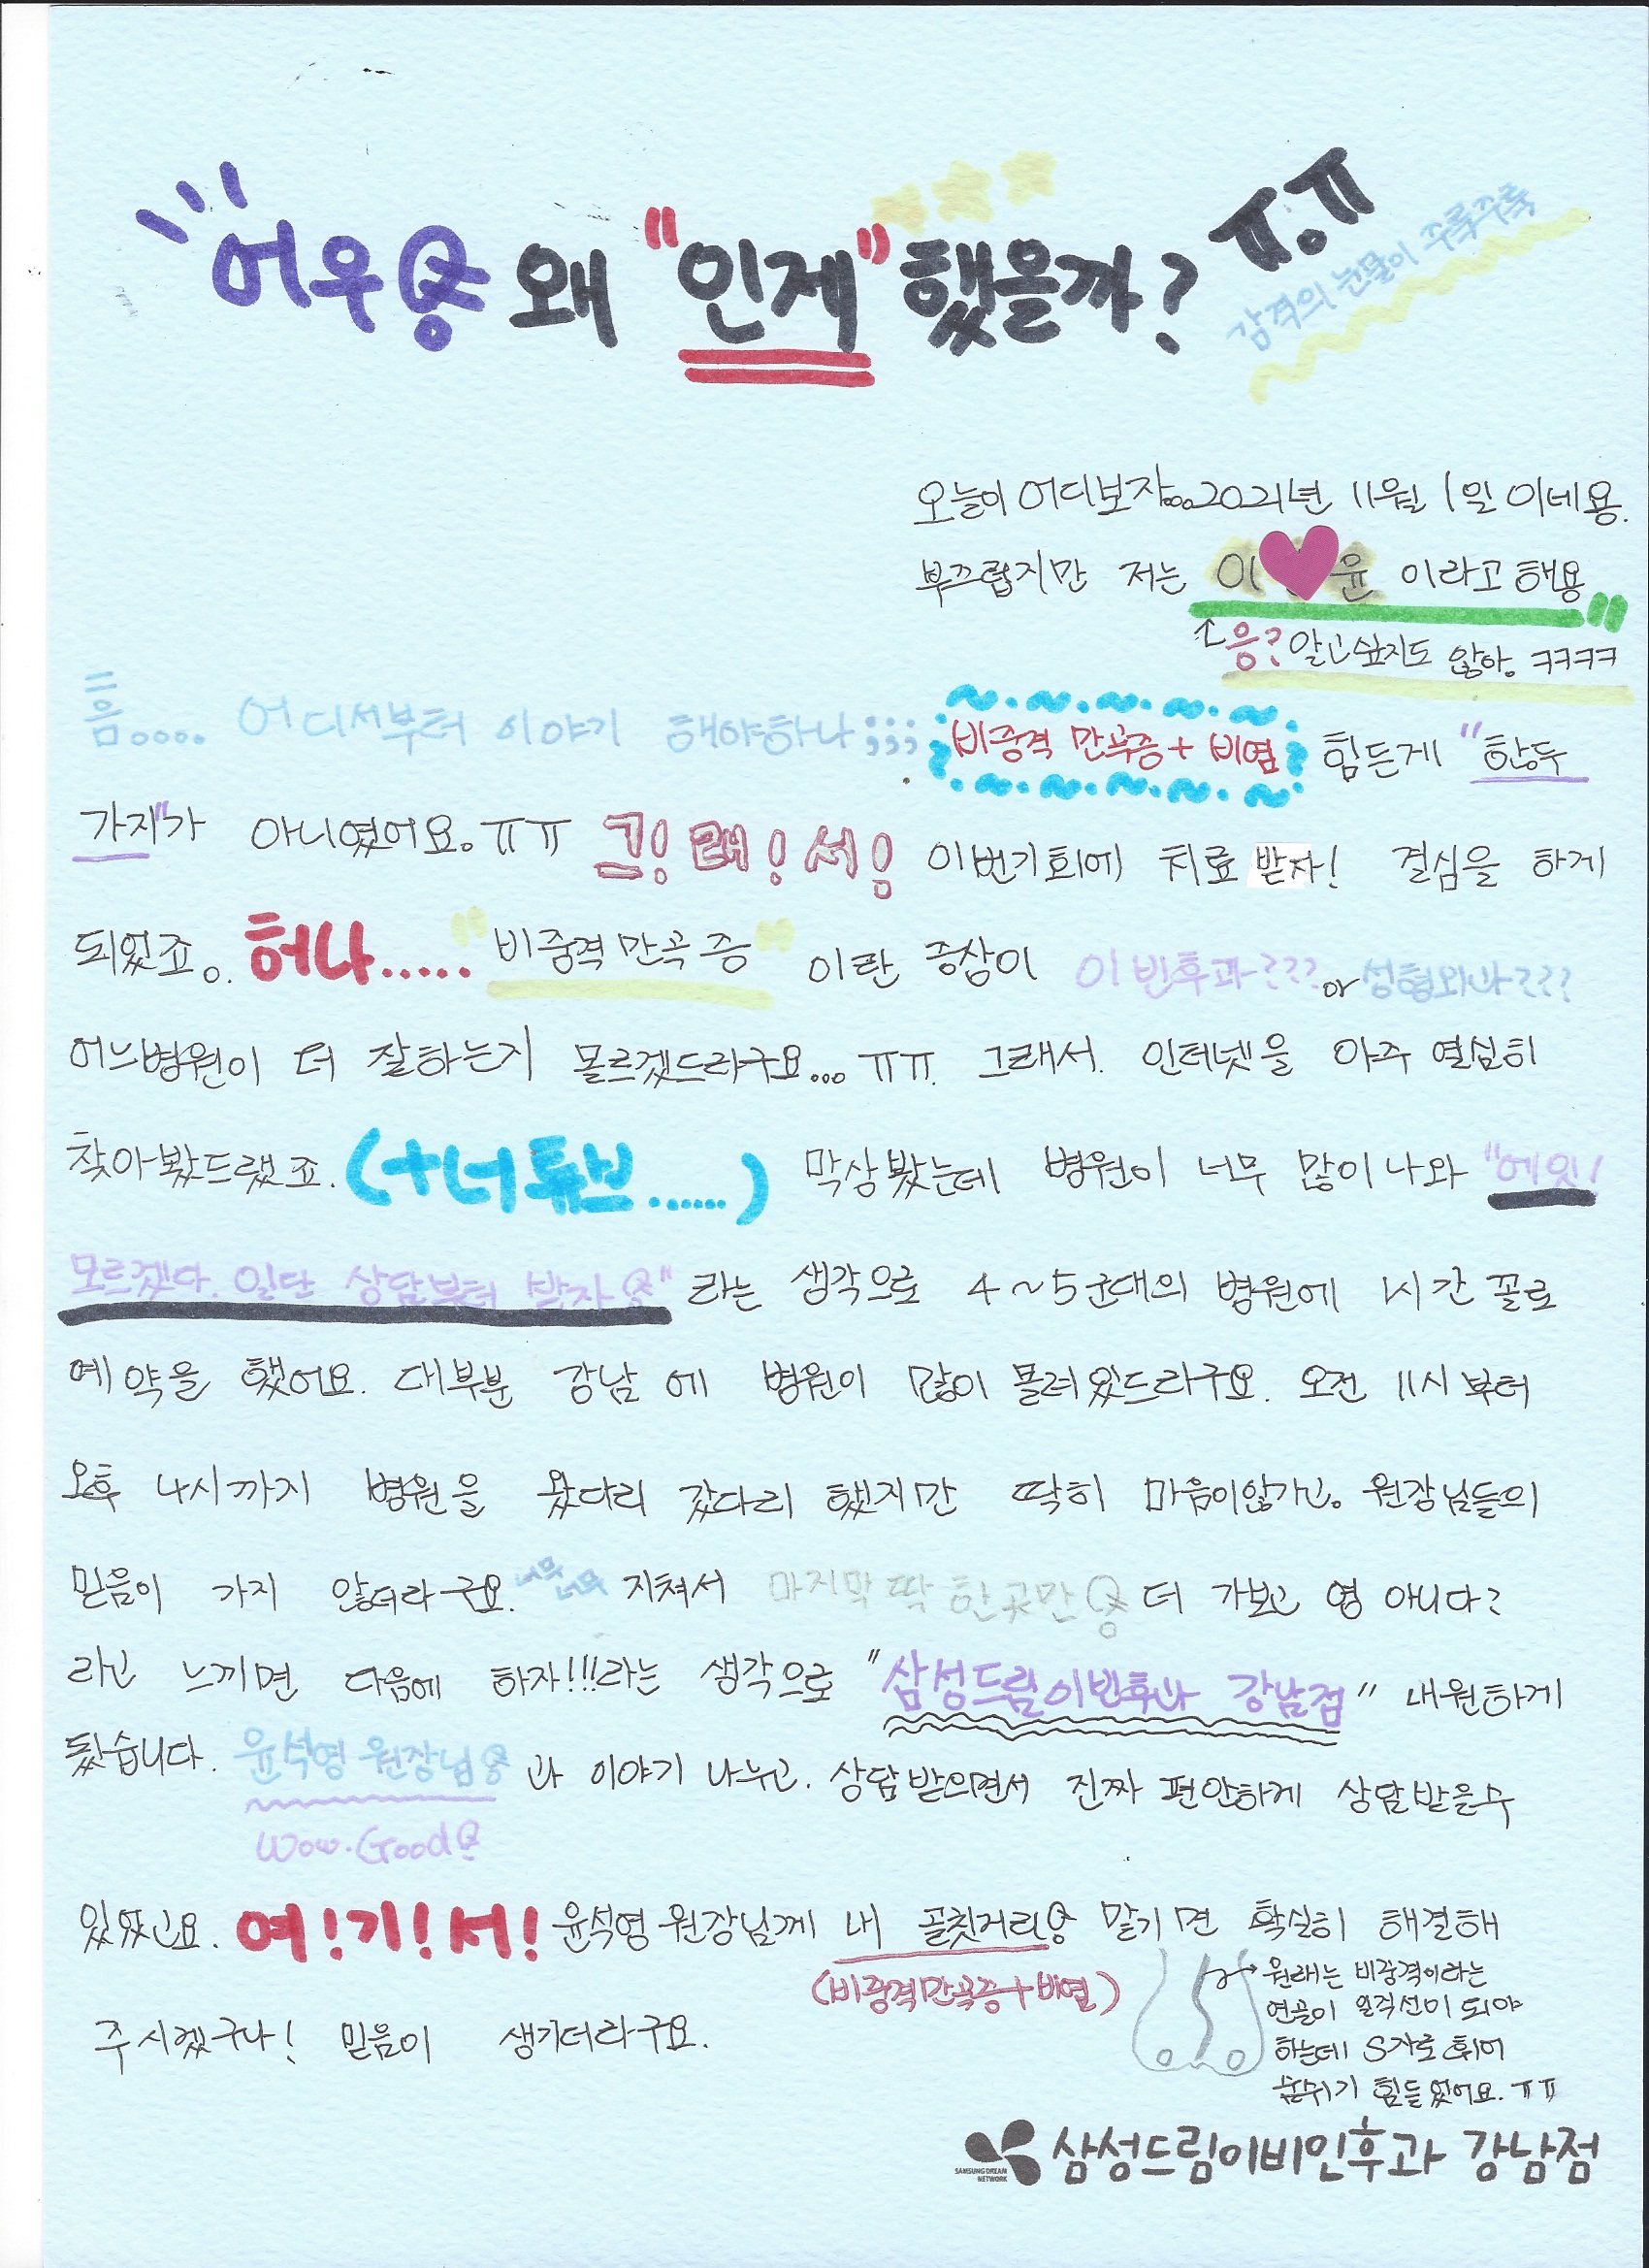 어우 왜 "인제" 했을까? ㅠ.ㅠ
감격의 눈물이 주륵주륵
오늘이 어디보자... 2021년 11월 1일 이네용.
부끄럽지만 저는 이 윤 이라고 해용"
↑응? 알고싶지도 않아. ㅋㅋㅋㅋ
흠.... 어디서부터 이야기 해야하나;;;; 비중격 만곡증 + 비염 힘든게 "한두
가지"가 아니였어요. ㅠㅠ 그! 래! 서! 이번기회에 치료 받자! 결심을 하게
되었죠. 허나..... "비중격만곡증" 이란 증상이 이빈후과??? or 성형외과???
어느병원이 더 잘하는지 몰르겠드라구요... ㅠㅠ. 그래서. 인터넷을 아주 열심히
찾아봤드랬죠. (+너튜브......) 막상봤는데 병원이 너무 많이나와 "에잇!
모르겠다. 일단 상담부터 받자" 라는 생각으로 4~5군대의 병원에 1시간 꼴로
예약을 했어요. 대부분 강남에 병원이 많이 몰려있드라구요. 오전 11시부터
오후 4시까지 병원을 왔다리 갔다리 했지만 딱히 마음이않가고. 원장님들의
믿음이 가지 않더라구요. 너무너무 지쳐서 마지막 딱 한곳만 더 가보고 영 아니다?
라고 느끼면 다음에 하자!!!라는 생각으로 "삼성드림이빈후과 강남점" 내원하게
됐습니다. 윤석영 원장님 과 이야기 나누고. 상담받으면서 진짜 편안하게 상담받을수
Wow. Good
있었고요. 여!기!서! 윤석영 원장님께 내 골칫거리 맡기면 확실히 해결해
(비중격만곡증+비염)
주시겠구나! 믿음이 생기더라구요.
원래는 비중격이라는
연골이 일직선이 되야
하는데 S자로 휘어
숨쉬기 힘들었어요. ㅠㅠ
SAMSUNG DREAM
NETWORK
삼성드림이비인후과 강남점